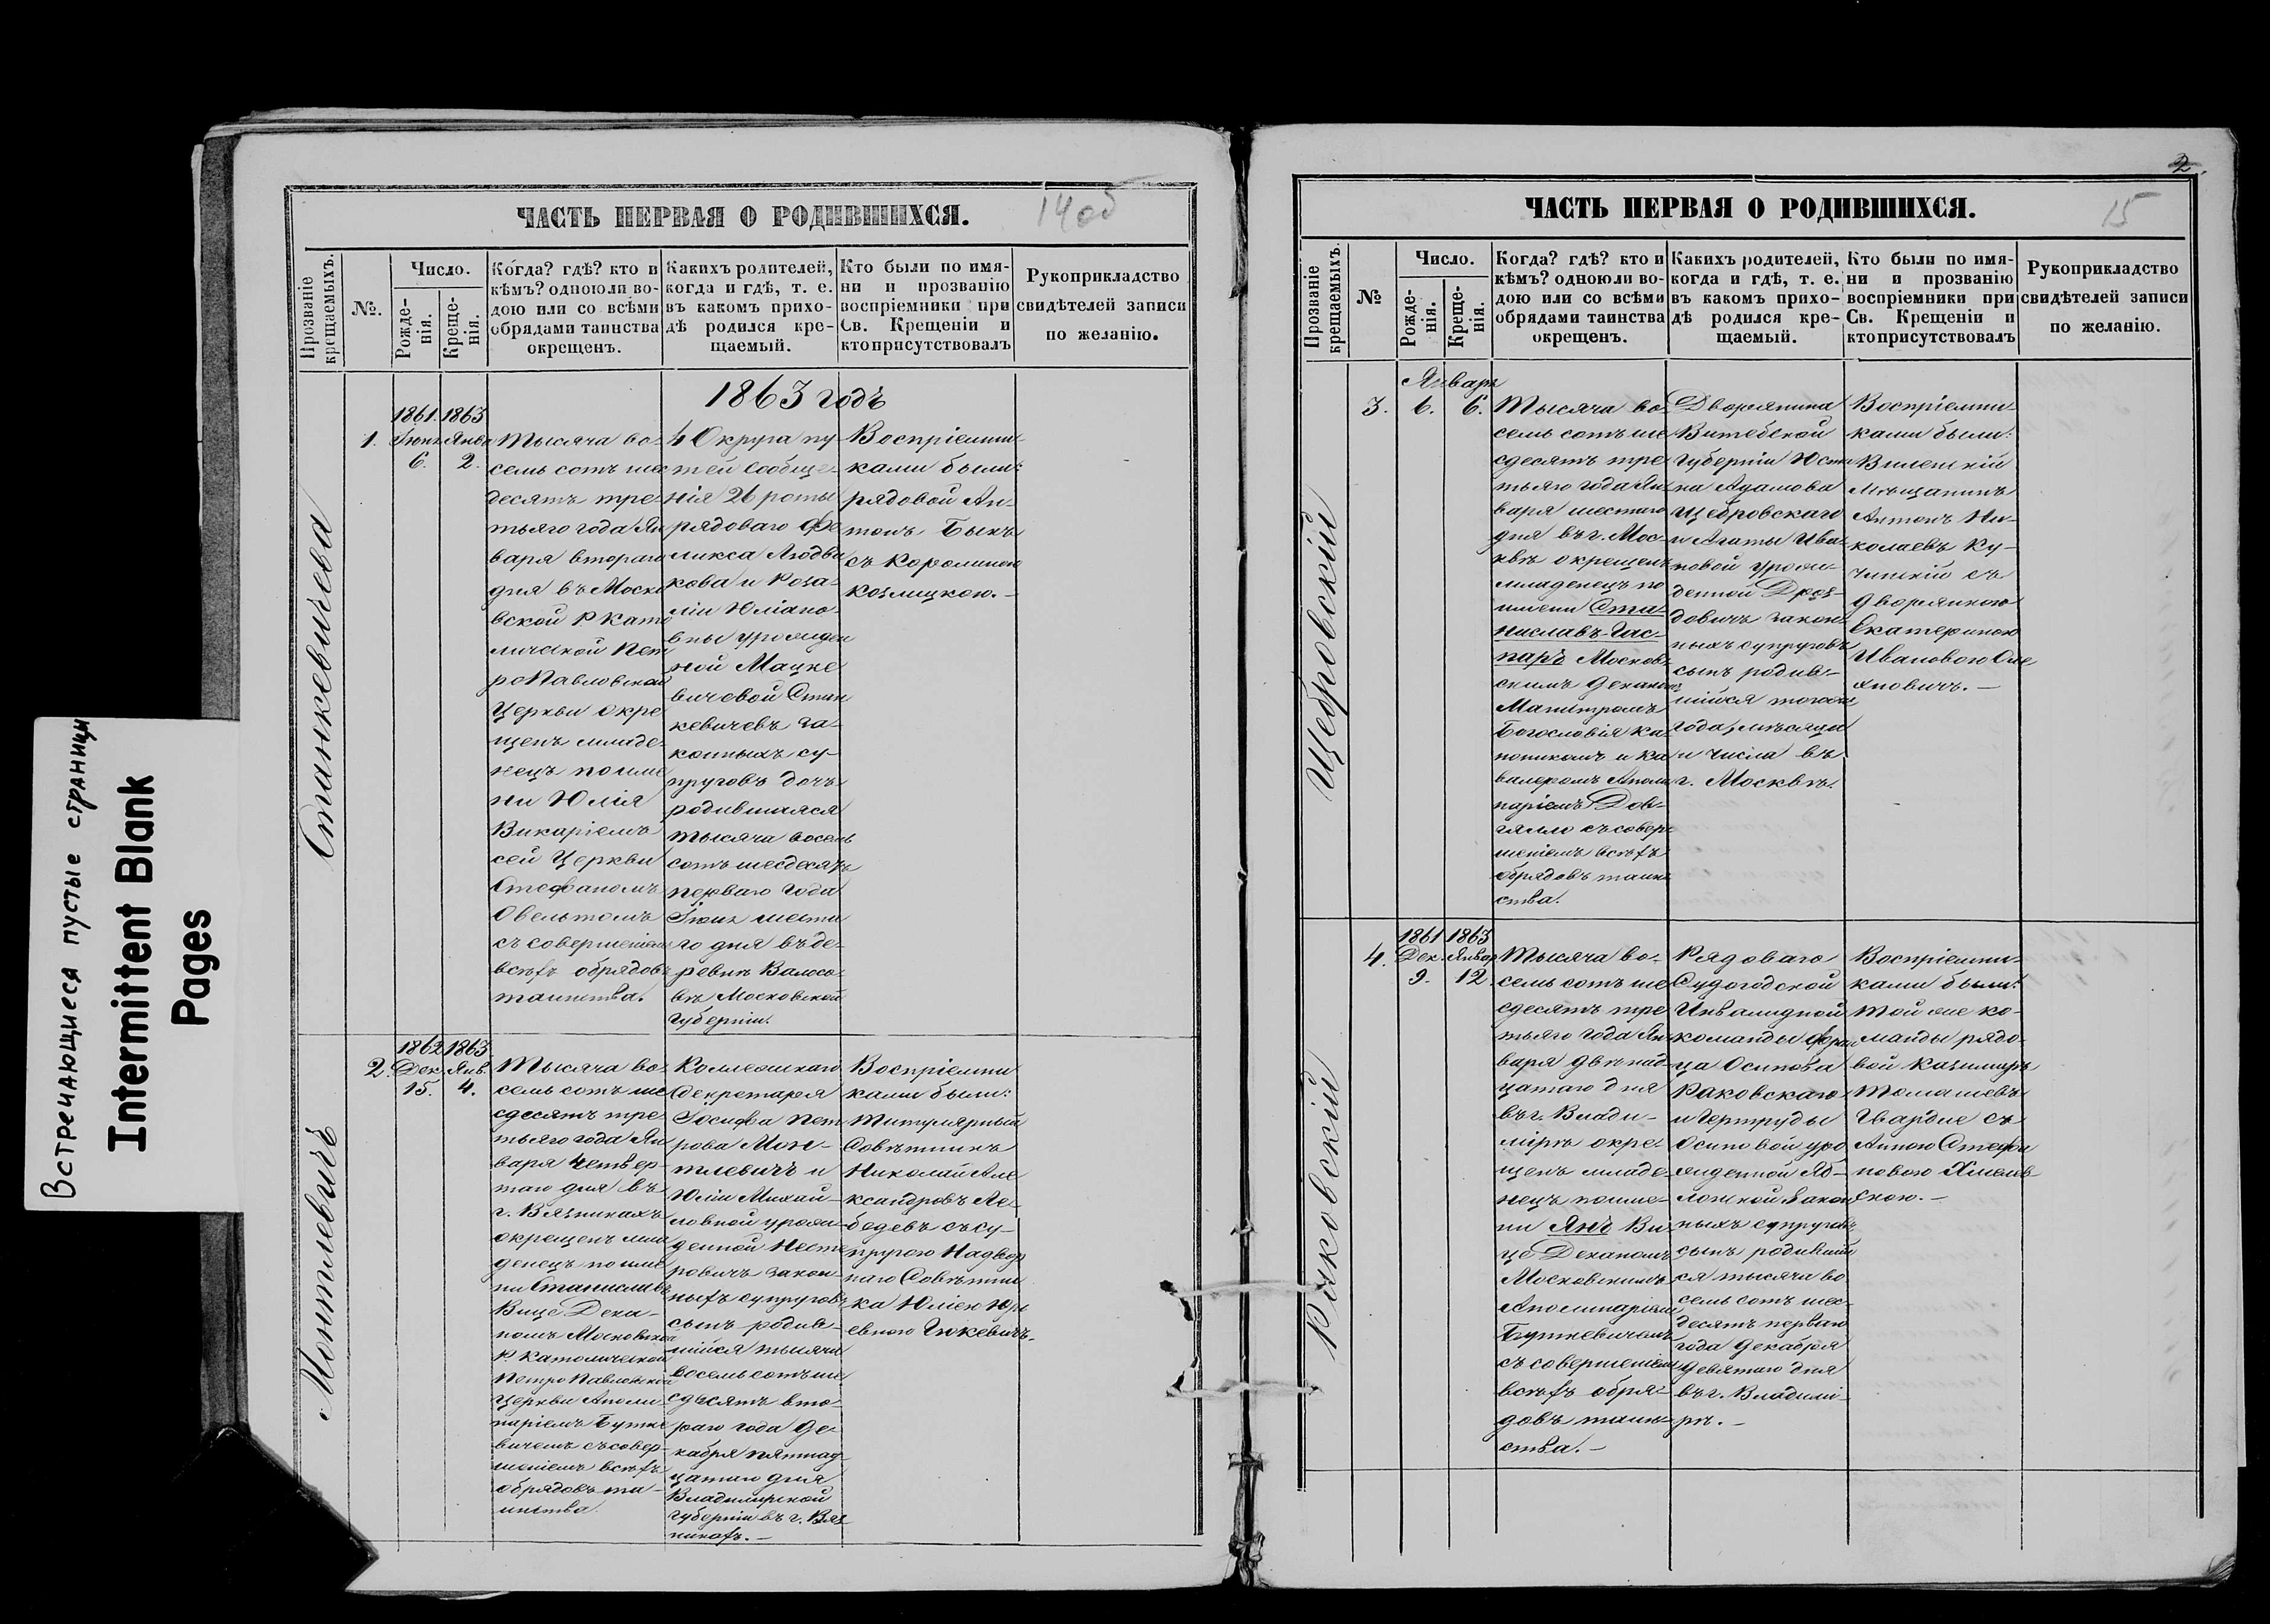 Встречающиеся пустые страницы
Intermittent Blank
Pages
ЧАСТЬ ПЕРВАЯ О РОДИВШИХСЯ.
14 об
Прозваніе
крещаемыхъ.
№.
Число.
Рожде-
нія.
Креще-
нія.
Когда? гдѣ? кто и
кѣмъ? одною ли во-
дою или со всѣми
обрядами таинства
окрещенъ.
Какихъ родителей,
когда и гдѣ, т. е.
въ какомъ прихо-
дѣ родился кре-
щаемый.
Кто были по имя-
ни и прозванію
воспріемники при
Св. Крещеніи и
кто присутствовалъ
Рукоприкладство
свидѣтелей записи
по желанію.
1863 годъ
Станкевичева
1.
1861.
Іюнь
6.
1863
Янва
2.
Тысяча во-
семь сотъ шес
десятъ тре-
тьяго года Ян
варя втораго
дня въ Моско
вской Р Като
лической Пет
роПавловской
Церкви окре
щенъ младе-
нецъ по име
ни Юлія
Викаріемъ
сей Церкви
Стефаномъ
Овельтомъ
съ совершеніемъ
всѣхъ обрядовъ
таинства.
4 Округа пу
тей Сообще-
нія 26 роты
рядоваго Фе
ликса Людви
кова и Роза-
ліи Юліано-
вны урожден
ной Мацке
вичевой Стан
кевичевъ за-
конныхъ су-
пруговъ дочь
родившаяся
тысяча восемь
сотъ шесдесятъ
перваго года
Іюня шеста
го дня въ де-
ревнѣ Валосо-
вѣ Московской
Губерніи.
Воспріемни-
ками были:
рядовой Ан-
тонъ Быкъ
съ Королиною
Козлицкою.-
Монтлевичъ
2.
1862
Дек.
15.
1863.
Янв.
4.
Тысяча во-
семь сотъ ше
сдесятъ тре-
тьяго года Ян
варя четвер-
таго дня въ
г. Вязникахъ
окрещенъ мла
денецъ по име
ни Станиславъ
Вице Дека-
номъ Московской
Р. Католической
Петро Павловской
Церкви Аполи-
наріемъ Бутке
вичемъ съ совер-
шеніемъ всѣхъ
обрядовъ та-
инства.
Коллежскаго
Секретаря
Іосифа Пет
рова Мон-
тлевичъ и
Юліи Михай-
ловной урож-
денной Несте
ровичъ закон-
ныхъ супруговъ
сынъ родив-
шійся тысяча
восемь сотъ ше
сдесятъ вто-
раго года Де-
кабря пятнад-
цатаго дня
Владимірской
Губерніи въ г. Вяз
никахъ.-
Воспріемни
ками были:
Титулярный
Совѣтникъ
Николай Але
ксандровъ Ле-
бедевъ съ су-
пругою Надвор
наго Совѣтни
ка Юліею Юрі
евною Гюкевичъ.
2.
ЧАСТЬ ПЕРВАЯ О РОДИВШИХСЯ.
15
Прозваніе
крещаемыхъ.
№
Число.
Рожде-
нія.
Креще-
нія.
Когда? гдѣ? кто и
кѣмъ? одною ли во-
дою или со всѣми
обрядами таинства
окрещенъ.
Какихъ родителей,
когда и гдѣ, т. е.
въ какомъ прихо-
дѣ родился кре-
щаемый.
Кто были по имя-
ни и прозванію
воспріемники при
Св. Крещеніи и
кто присутствовалъ
Рукоприкладство
свидѣтелей записи
по желанію.
Щебровскій
3.
Январь
6.
6.
Тысяча во-
семь сотъ ше
сдесятъ тре-
тьяго года Ян-
варя шестаго
дня въ г. Мос-
квѣ окрещенъ
младенецъ по
имени Ста-
ниславъ-Гас-
паръ Московс
скимъ Деканомъ
Магистромъ
Богословія Ка-
ноникомъ и Ка
валеромъ Аполи
наріемъ Дов-
гялло съ совер-
шеніемъ всѣхъ
обрядовъ таин-
ства.
Дворянина
Витебской
Губерніи Юсти
на Адамова
Щебровскаго
и Агаты Ива-
новой урож-
денной Дроз-
довичъ закон-
ныхъ супруговъ
сынъ родив-
шійся тогоже
года, мѣсяца
и числа въ
г. Москвѣ.
Воспріемни-
ками были:
Виленскій
Мѣщанинъ
Антонъ Ни-
колаевъ Ку-
чинскій съ
дворянкою
Екатериною
Ивановою Оле
хновичъ.-
Раковскій
4.
1861
Дек.
9.
1863
Январ
12.
Тысяча во-
семь сотъ ше
сдесятъ тре
тьяго года Ян-
варя двѣнад-
цатаго дня
въ г. Влади-
мірѣ окре-
щенъ младе-
нецъ по име-
ни Янъ Ви-
це Деканомъ
Московскимъ
Аполинаріемъ
Буткевичемъ
съ совершеніемъ
всѣхъ обря-
довъ таин-
ства.-
Рядоваго
Судогодской
Инвалидной
команды Фран
ца Осипова
Раковскаго
и Гертруды
Осиповой уро
жденной Яб-
лонской закон
ныхъ супруговъ
сынъ родившій
ся тысяча во
семь сотъ шес-
десятъ перваго
года Декабря
девятаго дня
въ г. Владимі-
рѣ.-
Воспріемни-
ками были:
той же ко-
манды рядо-
вой Казимиръ
Томашевъ
Гвардие съ
Анною Стефа
новою Хмелев
скою.-